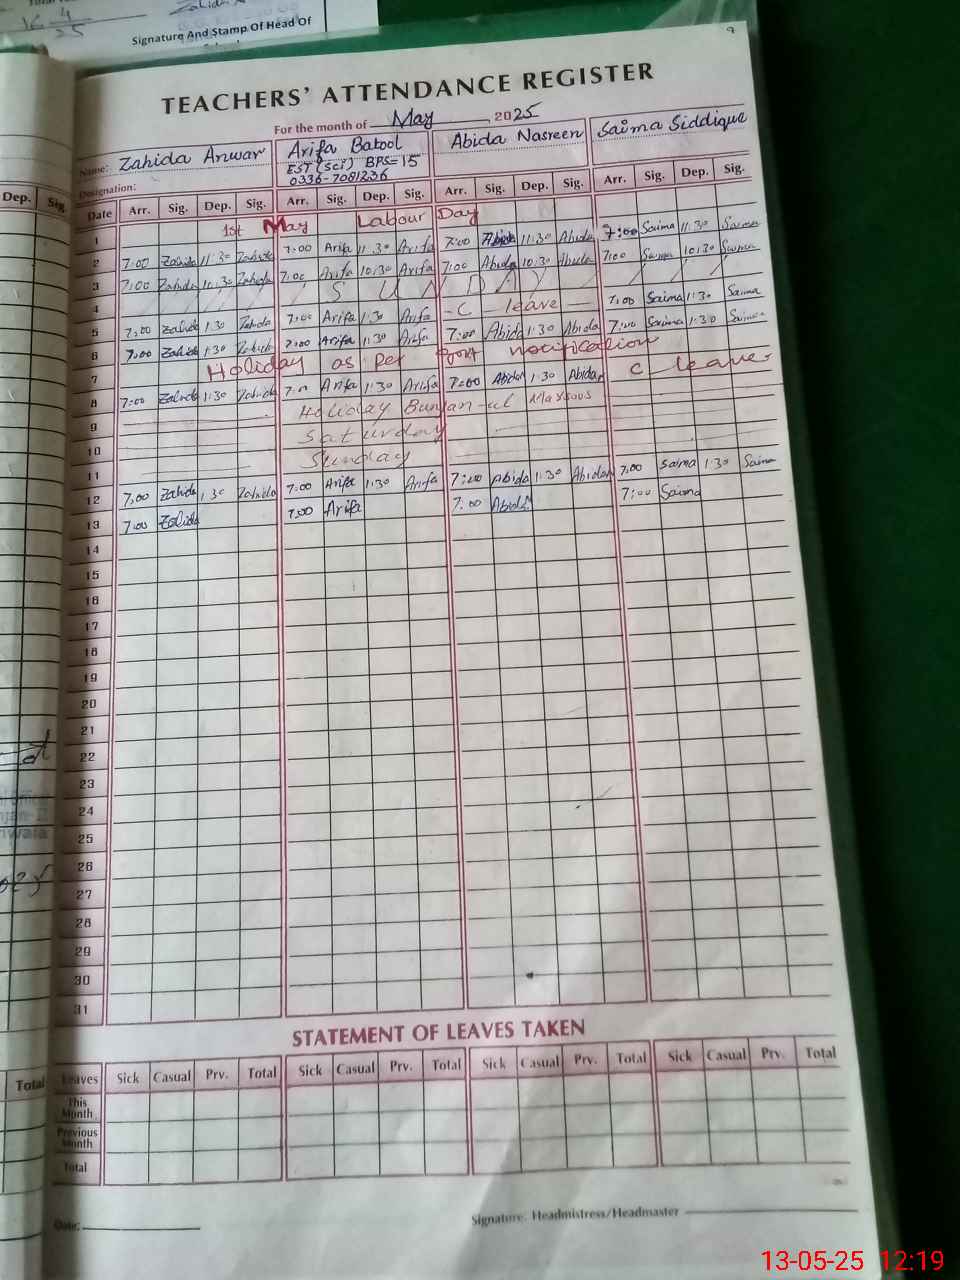 16 4
25
Signature And Stamp Of Head Of
TEACHERS' ATTENDANCE REGISTER
For the month of May 2025
Name: Zahida Anwar Arifa Batool Abida Nasreen Saima Siddique
EST (Sci) BPS=15
Designation: 0336-7081236
Dep. Sig. Date Arr. Sig. Dep. Sig. Arr. Sig. Dep. Sig. Arr. Sig. Dep. Sig. Arr. Sig. Dep. Sig.
1 1st May Labour Day
2 7:00 Zahida 11:30 Zahida 7:00 Arifa 11:30 Arifa 7:00 Abida 11:30 Abida 7:00 Saima 11:30 Saima
3 7:00 Zahida 10:30 Zahida 7:00 Arifa 10:30 Arifa 7:00 Abida 10:30 Abida 7:00 Saima 10:30 Saima
4 SUNDAY
5 7:00 Zahida 1:30 Zahida 7:00 Arifa 1:30 Arifa - C leave - 7:00 Saima 1:30 Saima
6 7:00 Zahida 1:30 Zahida 7:00 Arifa 1:30 Arifa 7:00 Abida 1:30 Abida 7:00 Saima 1:30 Saima
7 Holiday as per govt notification
8 7:00 Zahida 1:30 Zahida 7:00 Arifa 1:30 Arifa 7:00 Abida 1:30 Abida C leave
9 Holiday Bunyan-ul Marsous
10 Saturday
11 Sunday
12 7:00 Zahida 1:30 Zahida 7:00 Arifa 1:30 Arifa 7:00 Abida 1:30 Abida 7:00 Saima 1:30 Saima
13 7:00 Zahida 7:00 Arifa 7:00 Abida 7:00 Saima
14
15
16
17
18
19
20
21
22
23
24
25
26
27
28
29
30
31
STATEMENT OF LEAVES TAKEN
Total Leaves Sick Casual Prv. Total Sick Casual Prv. Total Sick Casual Prv. Total Sick Casual Prv. Total
This Month
Previous Month
Total
Date:
Signature: Headmistress/Headmaster
13-05-25 12:19